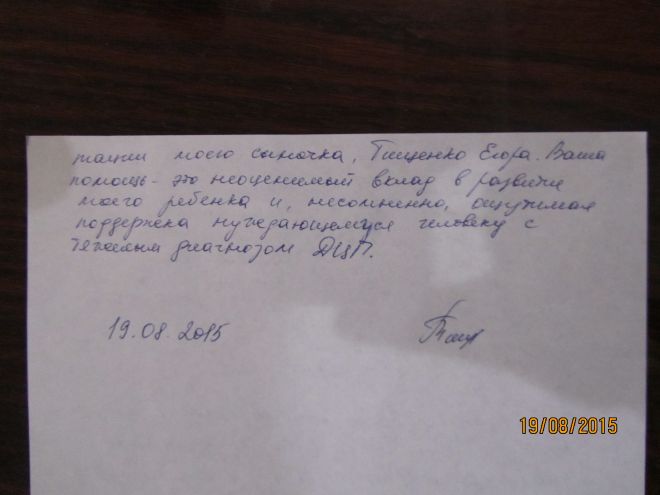 тации моего сыночка, Тищенко Егора. Ваша
помощь - это неоценимый вклад в развитие
моего ребенка и, несомненно, ощутимая
поддержка нуждающемуся человеку с
тяжелым диагнозом ДЦП.
19.08.2015
19/08/2015